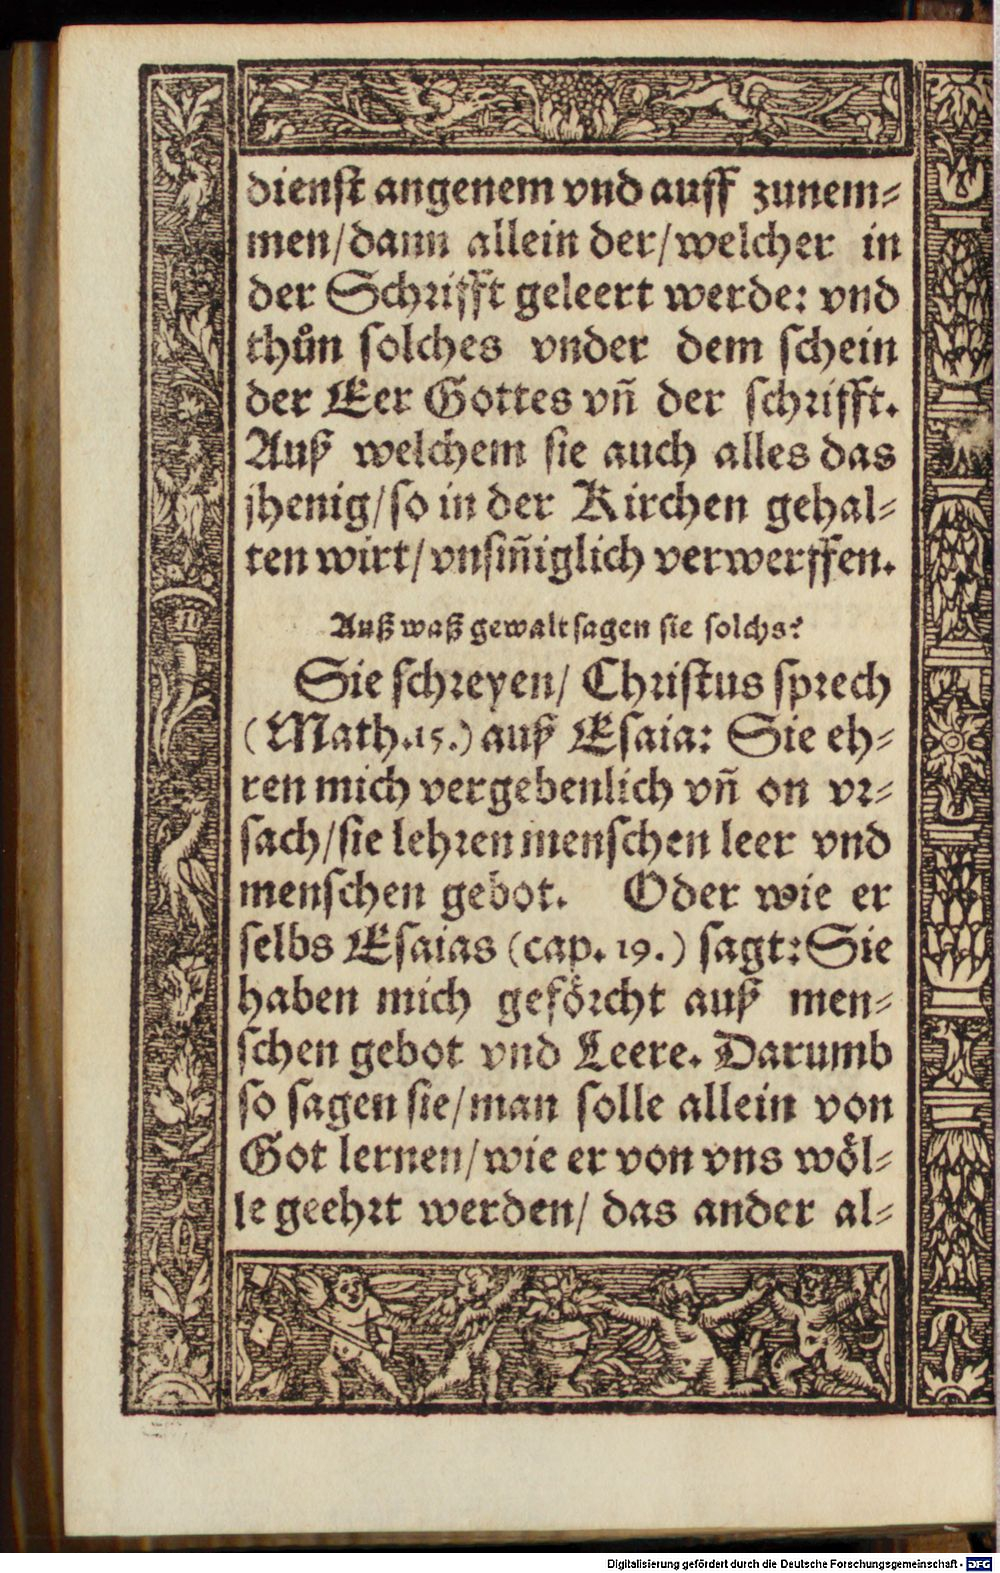 dienſt angenem vnd auff zunem⸗
men/dann allein der/welcher in
der Schrifft geleert werde: vnd
thůn ſolches vnder dem ſchein
der Eer Gottes vñ der ſchrifft.
Auß welchem ſie auch alles das
jhenig/ſo in der Kirchen gehal⸗
ten wirt/vnſiñiglich verwerffen.
Auß waß gewalt ſagen ſie ſolchs?
Sie ſchreyen/ Chriſtus ſprech
(Math.15.) auß Eſaia: Sie eh⸗
ren mich vergebenlich vñ on vr⸗
ſach/ſie lehren menſchen leer vnd
menſchen gebot. Oder wie er
ſelbs Eſaias (cap. 19.) ſagt: Sie
haben mich geförcht auß men⸗
ſchen gebot vnd Leere. Darumb
ſo ſagen ſie/man ſolle allein von
Got lernen/wie er von vns wöl⸗
le geehrt werden/ das ander al⸗
Digitalisierung gefördert durch die Deutsche Forschungsgemeinschaft - DFG